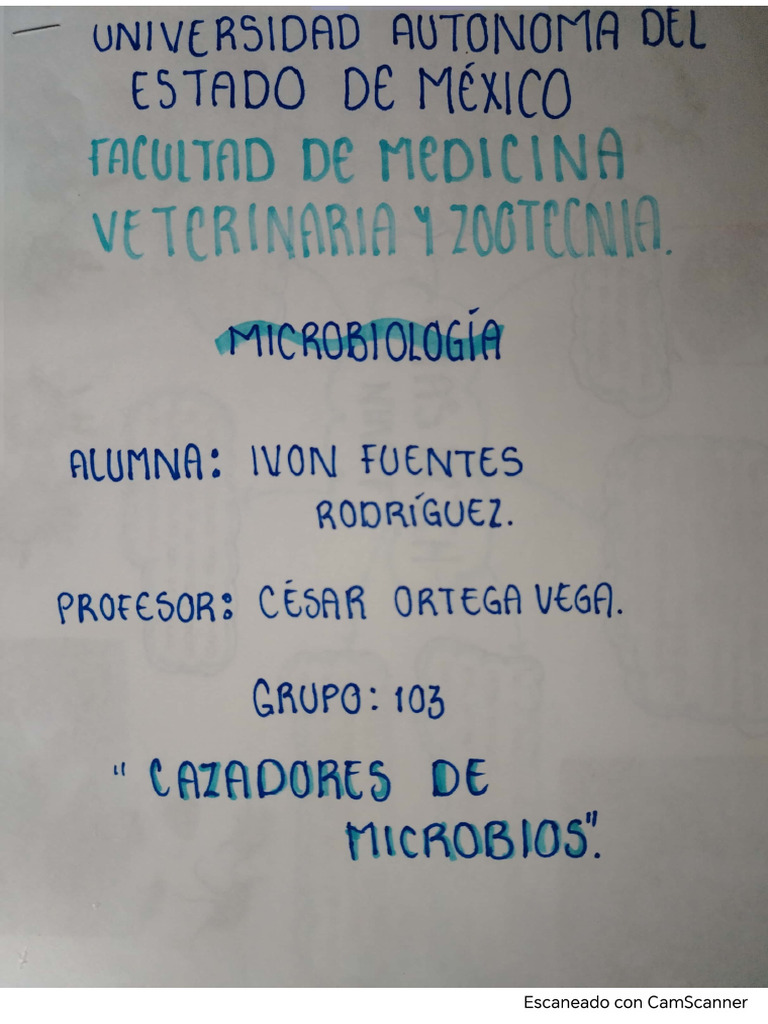 UNIVERSIDAD AUTONOMA DEL
ESTADO DE MÉXICO
FACULTAD DE MEDICINA
VETERINARIA Y ZOOTECNIA.
MICROBIOLOGÍA
ALUMNA: IVON FUENTES
RODRÍGUEZ.
PROFESOR: CÉSAR ORTEGA VEGA.
GRUPO: 103
"CAZADORES DE
MICROBIOS".
Escaneado con CamScanner